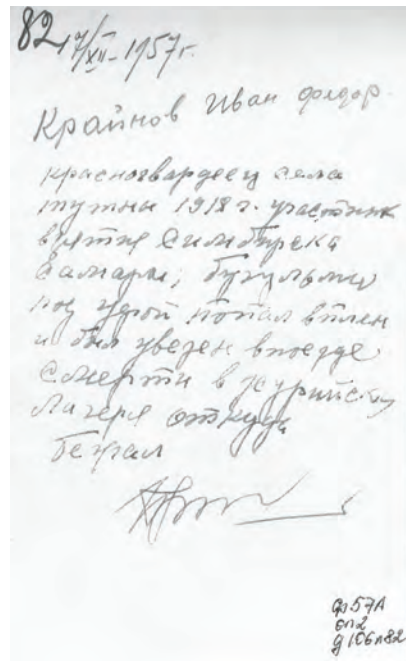 82
17/XII-1957г.
Крайнов Иван Федор.
красногвардеец села
1918 г. участник
взятие Симбирска
Самары, бугульмы
под уфой попал вплен
и был увезен впоезде
смерти в
лагеря откуда
бежал
ф57А
оп2
д106л82